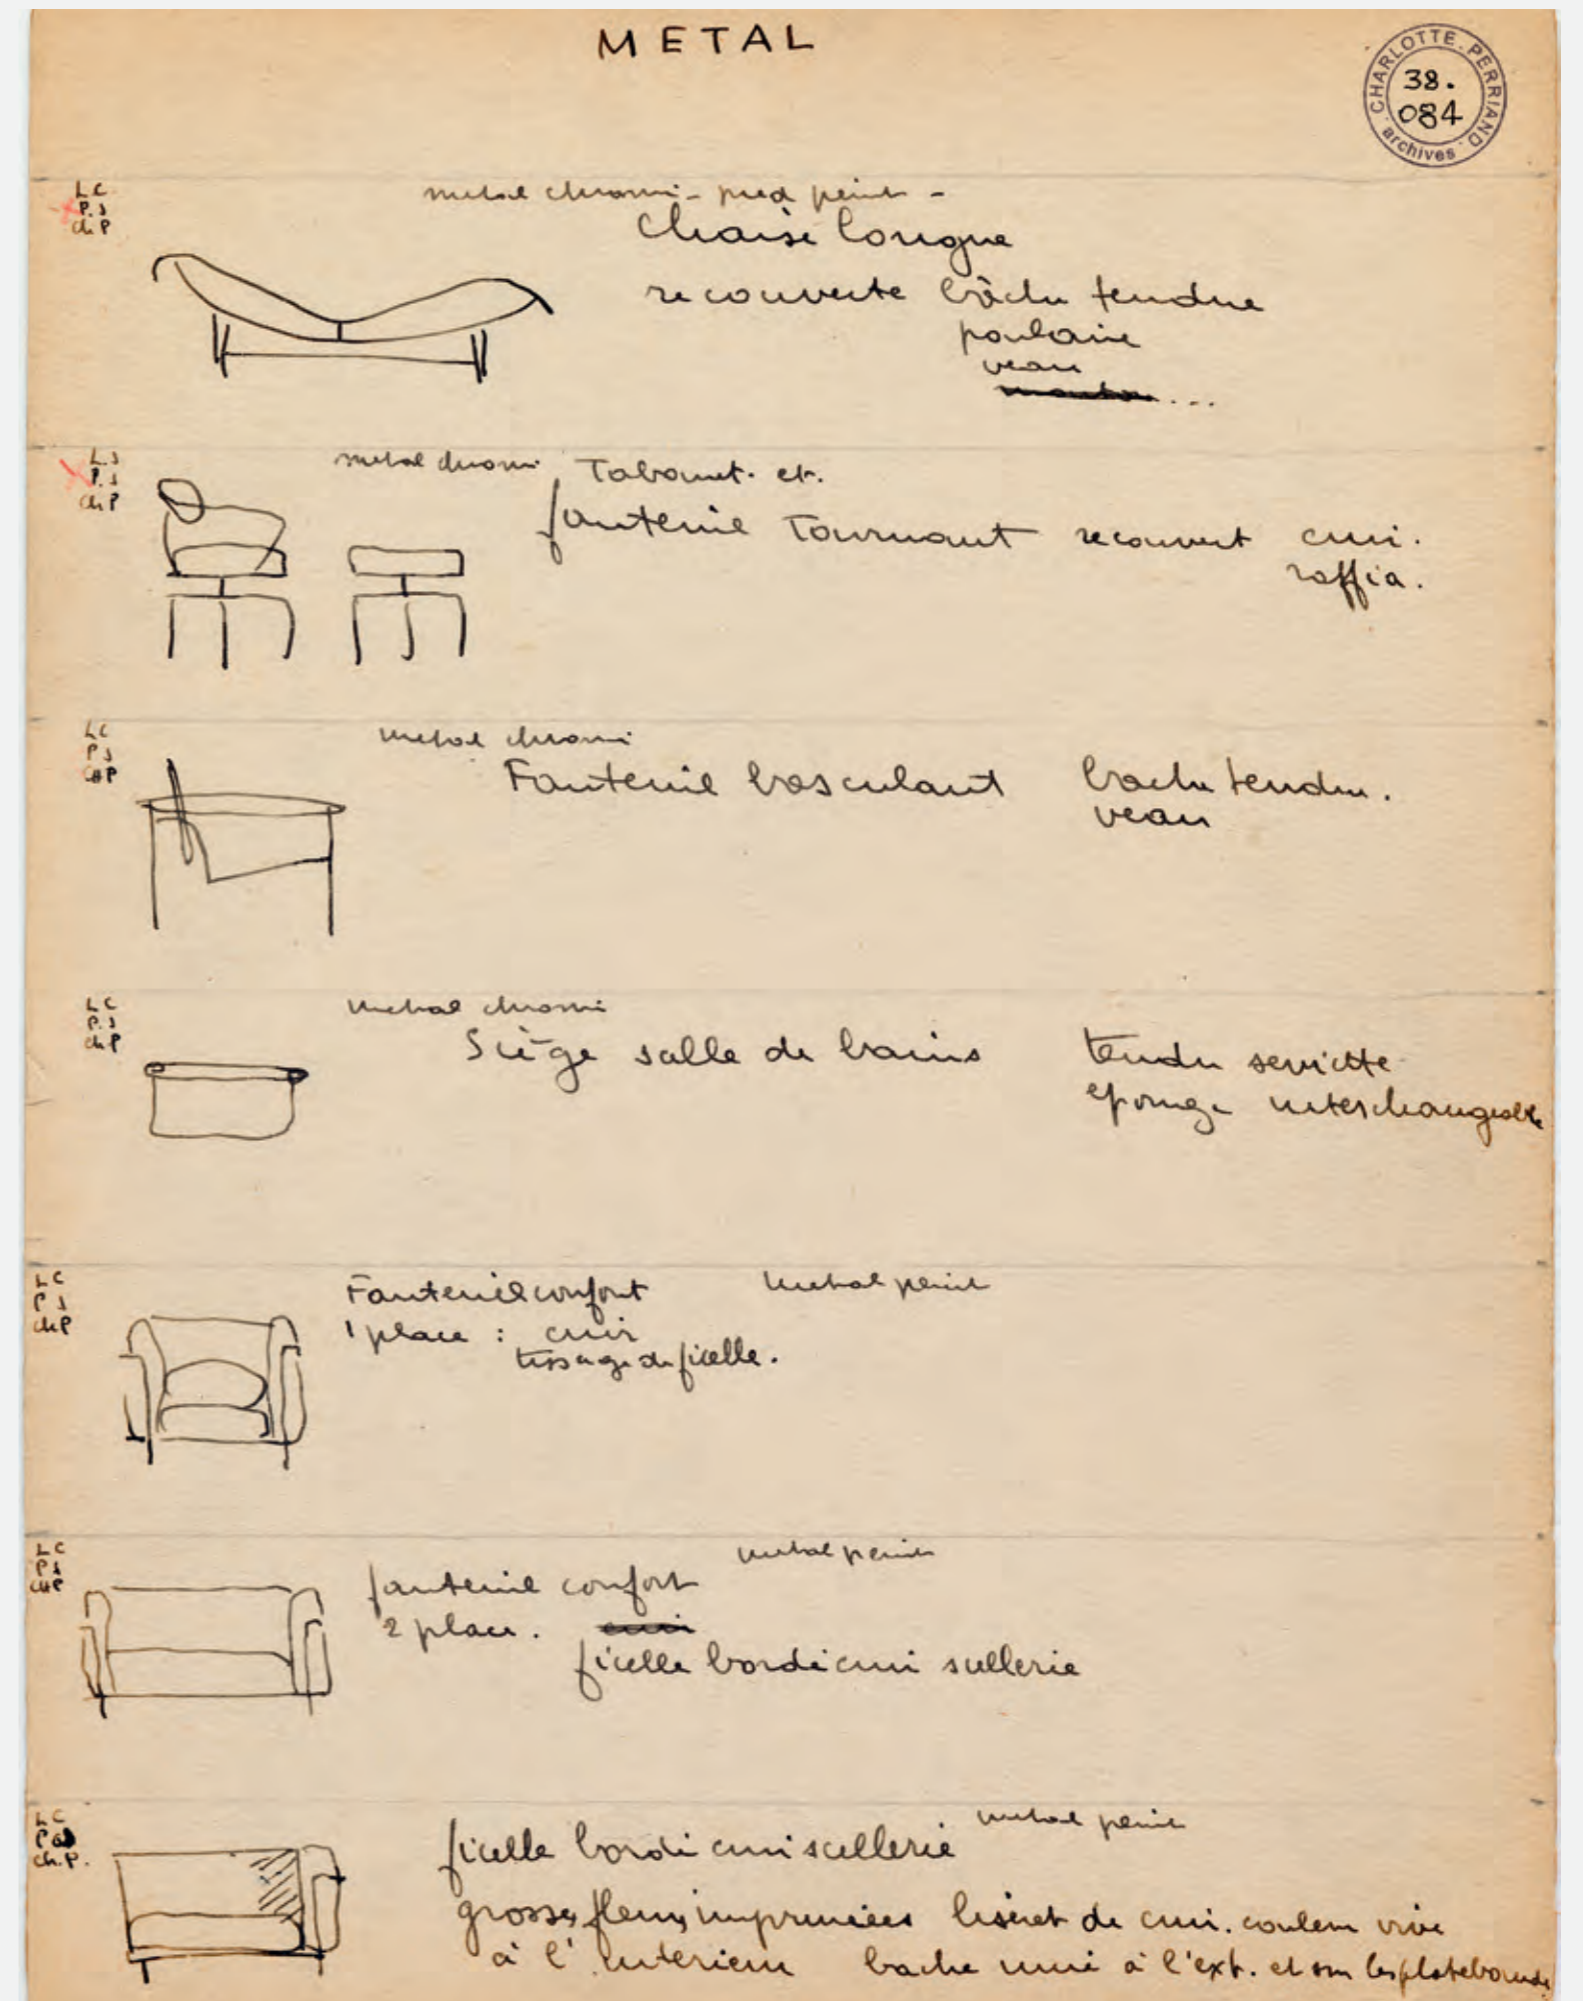 METAL
CHARLOTTE PERRIAND
38.
084
archives
LC
P.J
ch P
metal chromé - pied peint -
Chaise longue
recouverte bâche tendue
poulain
veau
mouton...
L.J
P.J
ch P
metal chromé Tabouret. et.
fauteuil Tournant recouvert cuir.
raffia.
LC
PJ
CHP
metal chromé
Fauteuil basculant bache tendu.
veau
LC
P.J
ch P
metal chromé
Siège salle de bains tendu serviette
eponge interchangeable
LC
PJ
chP
Fauteuil confort metal peint
1 place : cuir
tissage de ficelle.
LC
PJ
CHP
metal peint
fauteuil confort
2 place. cuir
ficelle bordé cuir sellerie
LC
ch.P.
metal peint
ficelle bordé cuir scellerie
grosses fleurs imprimées liseret de cuir. couleur vive
à l'interieur bache unie à l'ext. et sur les platebandes